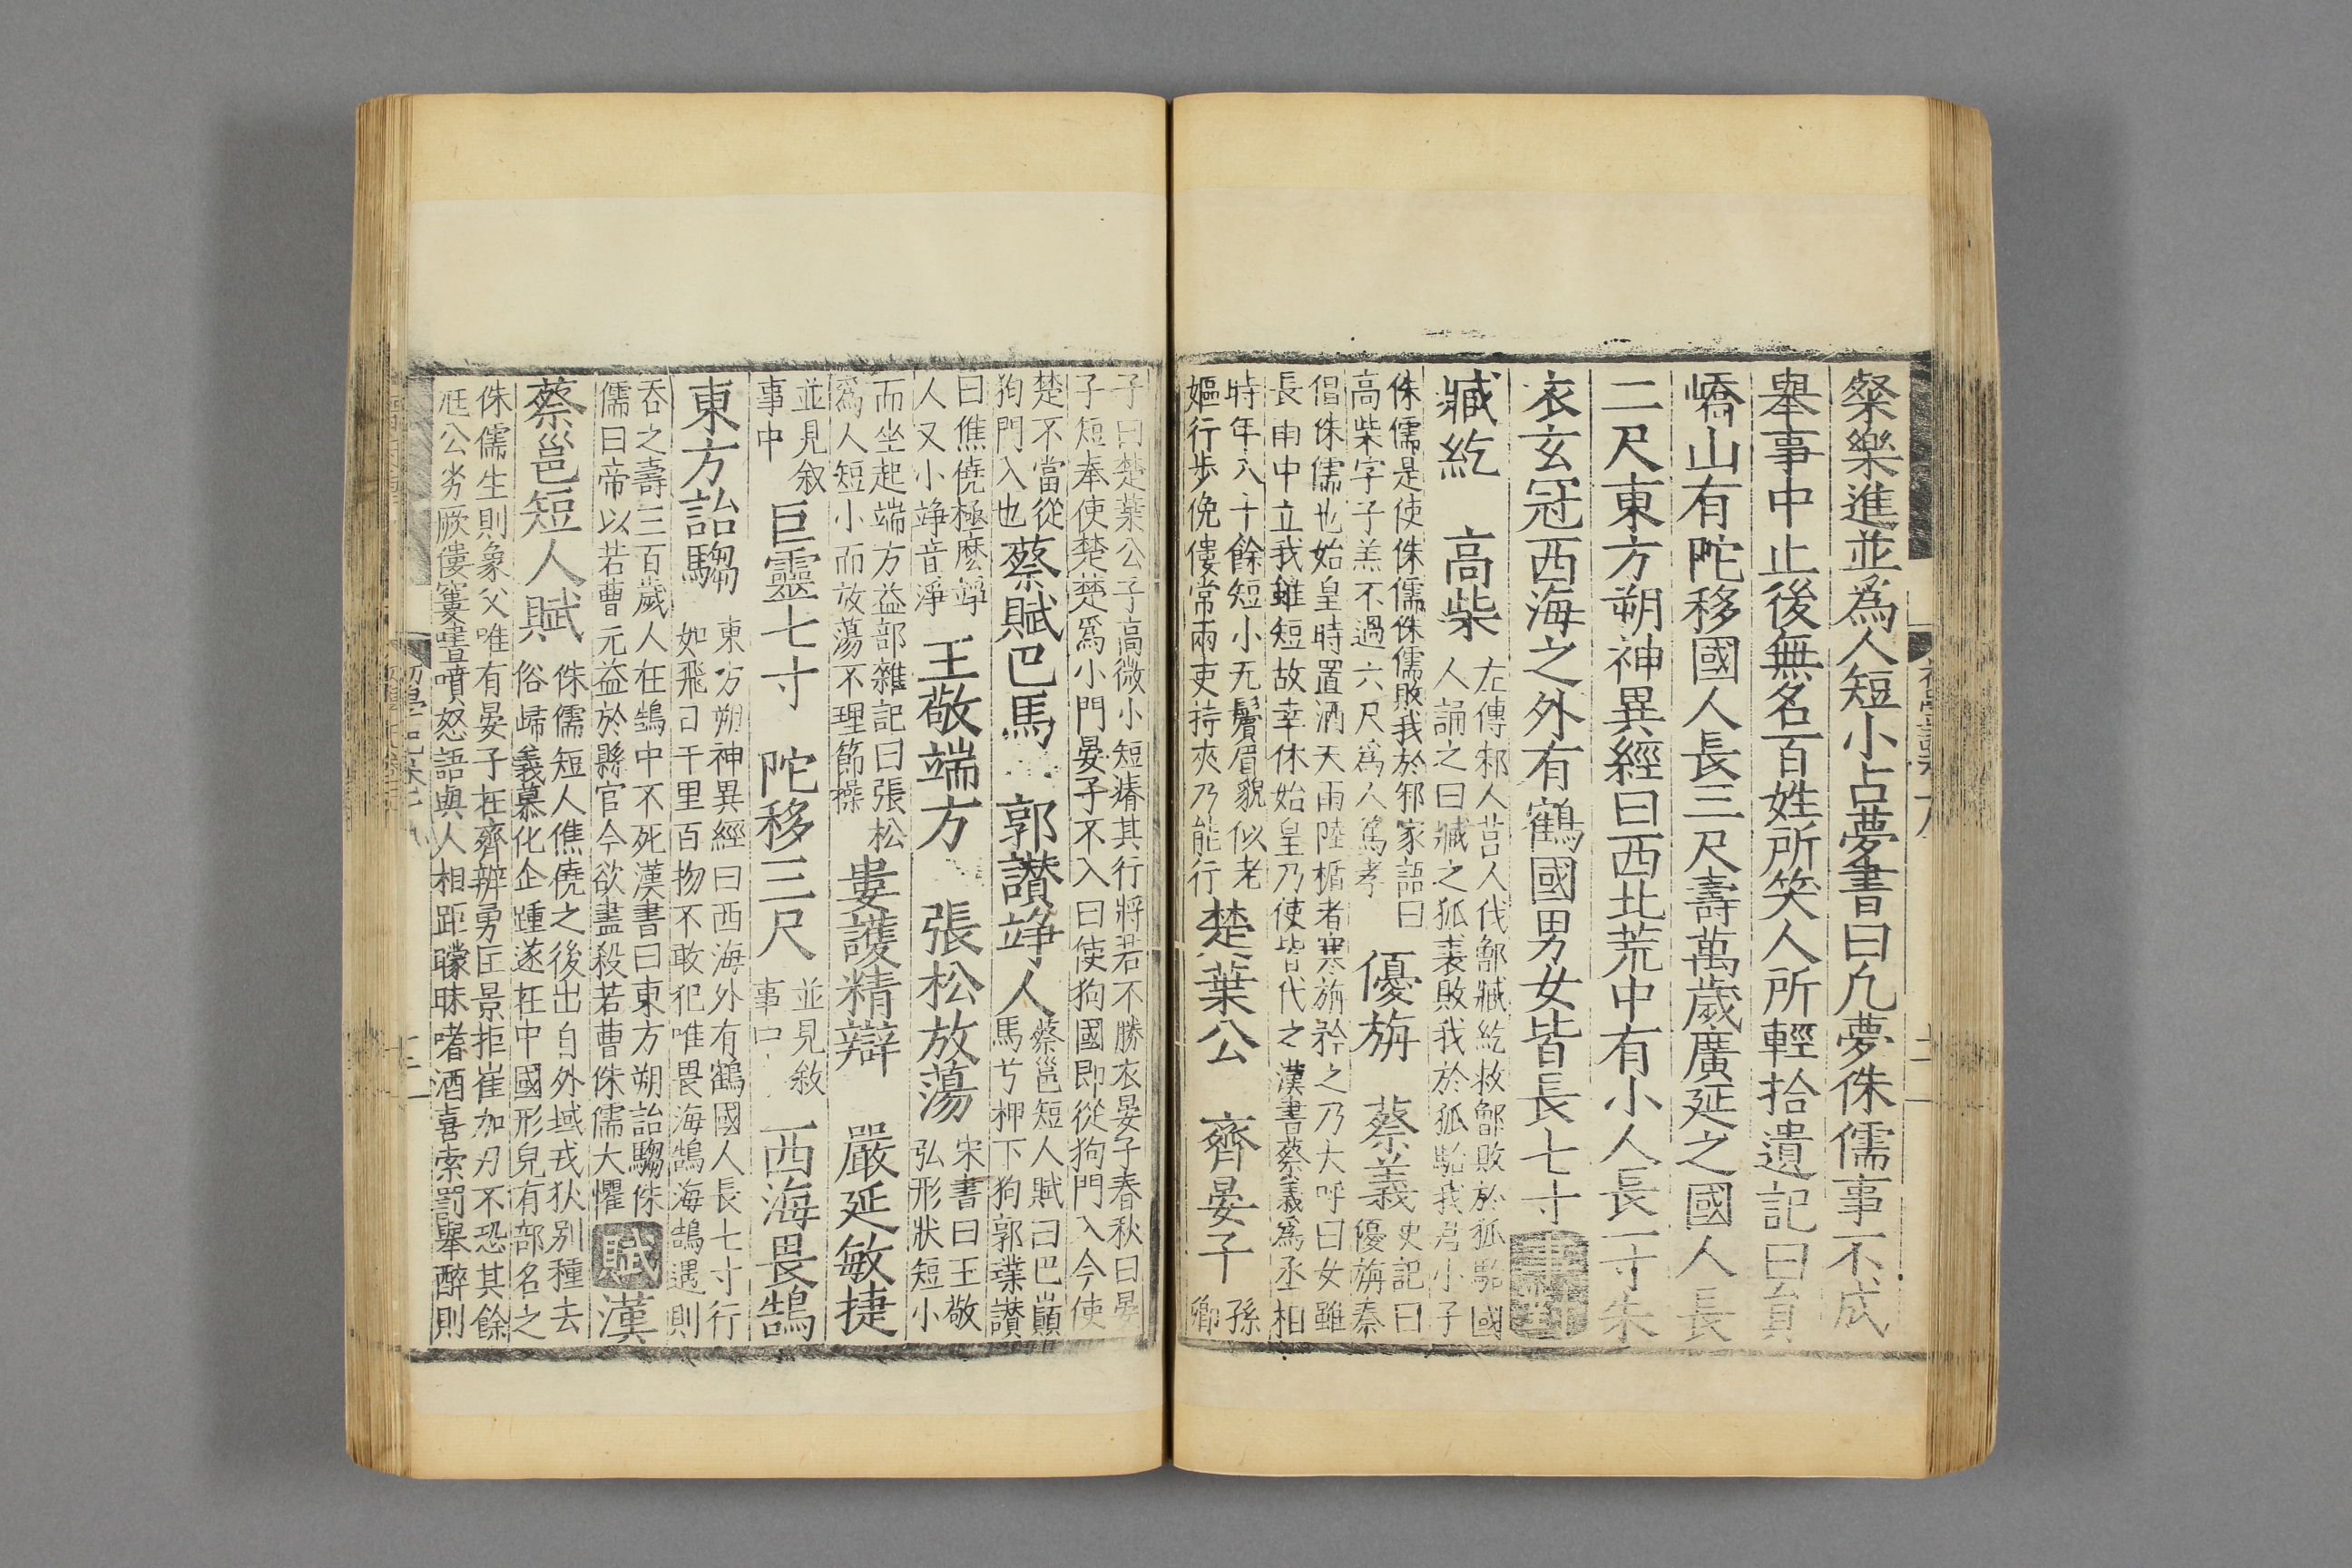 粲樂進並爲人短小占夢書曰凡夢侏儒事不成
舉事中止後無名百姓所笑人所輕拾遺記曰員
嶠山有陀移國人長三尺壽萬歲廣延之國人長
二尺東方朔神異經曰西北荒中有小人長一寸朱
衣玄冠西海之外有鶴國男女皆長七寸事對
臧紇 高柴 左傳邾人莒人伐鄫臧紇救鄫敗於狐駘國
人誦之曰臧之狐裘敗我於狐駘我君小子
侏儒是使侏儒侏儒敗我於邾家語曰
高柴字子羔不過六尺爲人篤孝
優旃 蔡義 史記曰
優旃秦
倡侏儒也始皇時置酒天雨陸楯者寒旃矜之乃大呼曰女雖
長雨中立我雖短故幸休始皇乃使皆代之漢書蔡義爲丞相
時年八十餘短小无鬢眉貌似老
嫗行步俛僂常兩吏持夾乃能行
楚葉公 齊晏子 孫
卿
子曰楚葉公子高微小短瘠其行將若不勝衣晏子春秋曰晏
子短奉使楚楚爲小門晏子不入曰使狗國即從狗門入今使
楚不當從
狗門入也
蔡賦巴馬 郭讃竫人 蔡邕短人賦曰巴巔
馬兮柙下狗郭璞讃
曰僬僥極麽竫
人又小竫音淨
王敬端方 張松放蕩 宋書曰王敬
弘形狀短小
而坐起端方益部雜記曰張松
爲人短小而放蕩不理節操
婁護精辯 嚴延敏捷
並見叙
事中
巨靈七寸 陀移三尺 並見敘
事中
西海畏鵠
東方詒騶 東方朔神異經曰西海外有鶴國人長七寸行
如飛日千里百物不敢犯唯畏海鵠海鵠遇則
吞之壽三百歲人在鵠中不死漢書曰東方朔詒騶侏
儒曰帝以若曹元益於縣官今欲盡殺若曹侏儒大懼
賦漢
蔡邕短人賦 侏儒短人僬僥之後出自外域戎狄別種去
俗歸義慕化企踵遂在中國形皃有部名之
侏儒生則象父唯有晏子在齊辨勇匡景拒崔加刃不恐其餘
尫公劣厥僂窶嘖噴怒語與人相距矇昧嗜酒喜索罰舉醉則